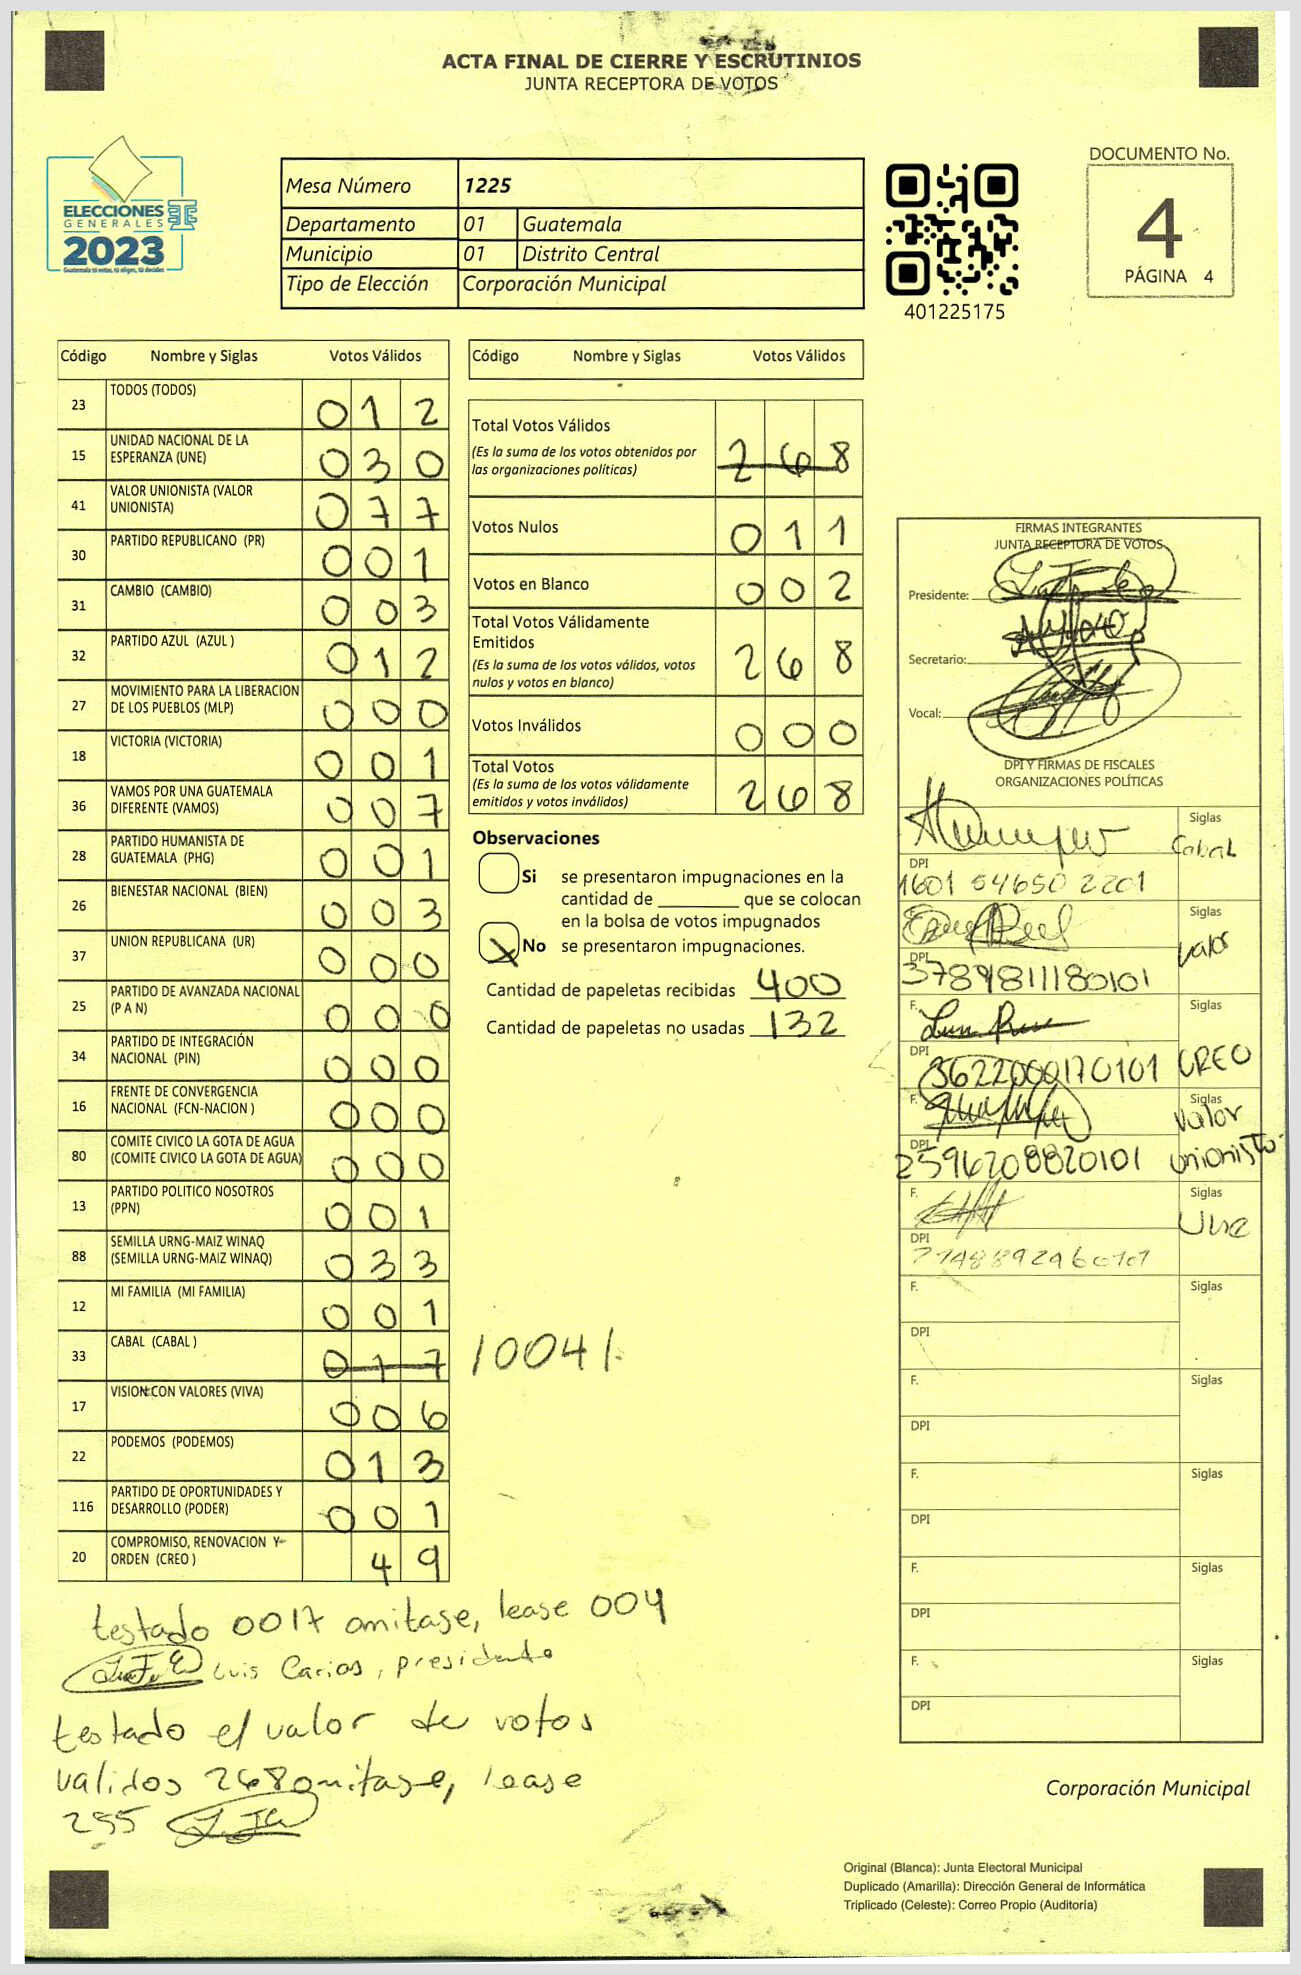 ACTA FINAL DE CIERRE Y ESCRUTINIOS
JUNTA RECEPTORA DE VOTOS
ELECCIONES
GENERALES
2023
Mesa Número 1225
Departamento 01 Guatemala
Municipio 01 Distrito Central
Tipo de Elección Corporación Municipal
401225175
DOCUMENTO No.
4
PÁGINA 4
Código Nombre y Siglas Votos Válidos
23 TODOS (TODOS) 0 1 2
15 UNIDAD NACIONAL DE LA ESPERANZA (UNE) 0 3 0
41 VALOR UNIONISTA (VALOR UNIONISTA) 0 7 7
30 PARTIDO REPUBLICANO (PR) 0 0 1
31 CAMBIO (CAMBIO) 0 0 3
32 PARTIDO AZUL (AZUL ) 0 1 2
27 MOVIMIENTO PARA LA LIBERACION DE LOS PUEBLOS (MLP) 0 0 0
18 VICTORIA (VICTORIA) 0 0 1
36 VAMOS POR UNA GUATEMALA DIFERENTE (VAMOS) 0 0 7
28 PARTIDO HUMANISTA DE GUATEMALA (PHG) 0 0 1
26 BIENESTAR NACIONAL (BIEN) 0 0 3
37 UNION REPUBLICANA (UR) 0 0 0
25 PARTIDO DE AVANZADA NACIONAL (P A N) 0 0 0
34 PARTIDO DE INTEGRACIÓN NACIONAL (PIN) 0 0 0
16 FRENTE DE CONVERGENCIA NACIONAL (FCN-NACION ) 0 0 0
80 COMITE CIVICO LA GOTA DE AGUA (COMITE CIVICO LA GOTA DE AGUA) 0 0 0
13 PARTIDO POLITICO NOSOTROS (PPN) 0 0 1
88 SEMILLA URNG-MAIZ WINAQ (SEMILLA URNG-MAIZ WINAQ) 0 3 3
12 MI FAMILIA (MI FAMILIA) 0 0 1
33 CABAL (CABAL ) 0 1 7 /004/.
17 VISION CON VALORES (VIVA) 0 0 6
22 PODEMOS (PODEMOS) 0 1 3
116 PARTIDO DE OPORTUNIDADES Y DESARROLLO (PODER) 0 0 1
20 COMPROMISO, RENOVACION Y ORDEN (CREO ) 4 9
Código Nombre y Siglas Votos Válidos
Total Votos Válidos 2 6 8
(Es la suma de los votos obtenidos por
las organizaciones políticas)
Votos Nulos 0 1 1
Votos en Blanco 0 0 2
Total Votos Válidamente
Emitidos 2 6 8
(Es la suma de los votos válidos, votos
nulos y votos en blanco)
Votos Inválidos 0 0 0
Total Votos 2 6 8
(Es la suma de los votos válidamente
emitidos y votos inválidos)
Observaciones
Si se presentaron impugnaciones en la
cantidad de ________ que se colocan
en la bolsa de votos impugnados
X No se presentaron impugnaciones.
Cantidad de papeletas recibidas 400
Cantidad de papeletas no usadas 132
FIRMAS INTEGRANTES
JUNTA RECEPTORA DE VOTOS
Presidente:
Secretario:
Vocal:
DPI Y FIRMAS DE FISCALES
ORGANIZACIONES POLÍTICAS
Siglas
Cabal
DPI
1601 54650 2201
Siglas
Valor
DPI
3789811180101
F. Siglas
CREO
DPI
3622000170101
F. Siglas
Valor
unionista
DPI
2596208820101
F. Siglas
Une
DPI
F. Siglas
DPI
F. Siglas
DPI
F. Siglas
DPI
F. Siglas
DPI
F. Siglas
DPI
testado 0017 omitase, lease 004
Luis Carios, presidente
testado el valor de votos
validos 268 omitase, lease
255
Corporación Municipal
Original (Blanca): Junta Electoral Municipal
Duplicado (Amarilla): Dirección General de Informática
Triplicado (Celeste): Correo Propio (Auditoría)